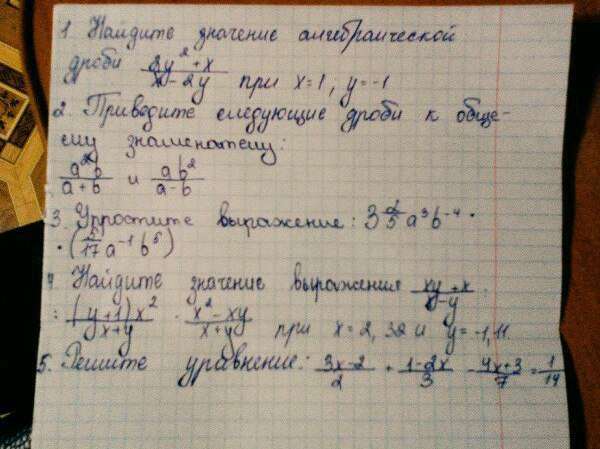 1. Найдите значение алгебраической
дроби (3y² + x)/(x - 2y) при x=1, y=-1
2. Приводите следующие дроби к обще-
му знаменателю:
a²b/(a+b) и ab²/(a-b)
3. Упростите выражение: 3 2/5 a³b⁻⁴ ·
· (5/17 a⁻¹b⁵)
4. Найдите значение выражения (xy + x)/(x-y) :
: (y+1)x²/(x+y) · (x² - xy)/(x+y) при x=2,32 и y=-1,11.
5. Решите уравнение: (3x-2)/2 + (1-2x)/3 - (4x+3)/7 = 1/14